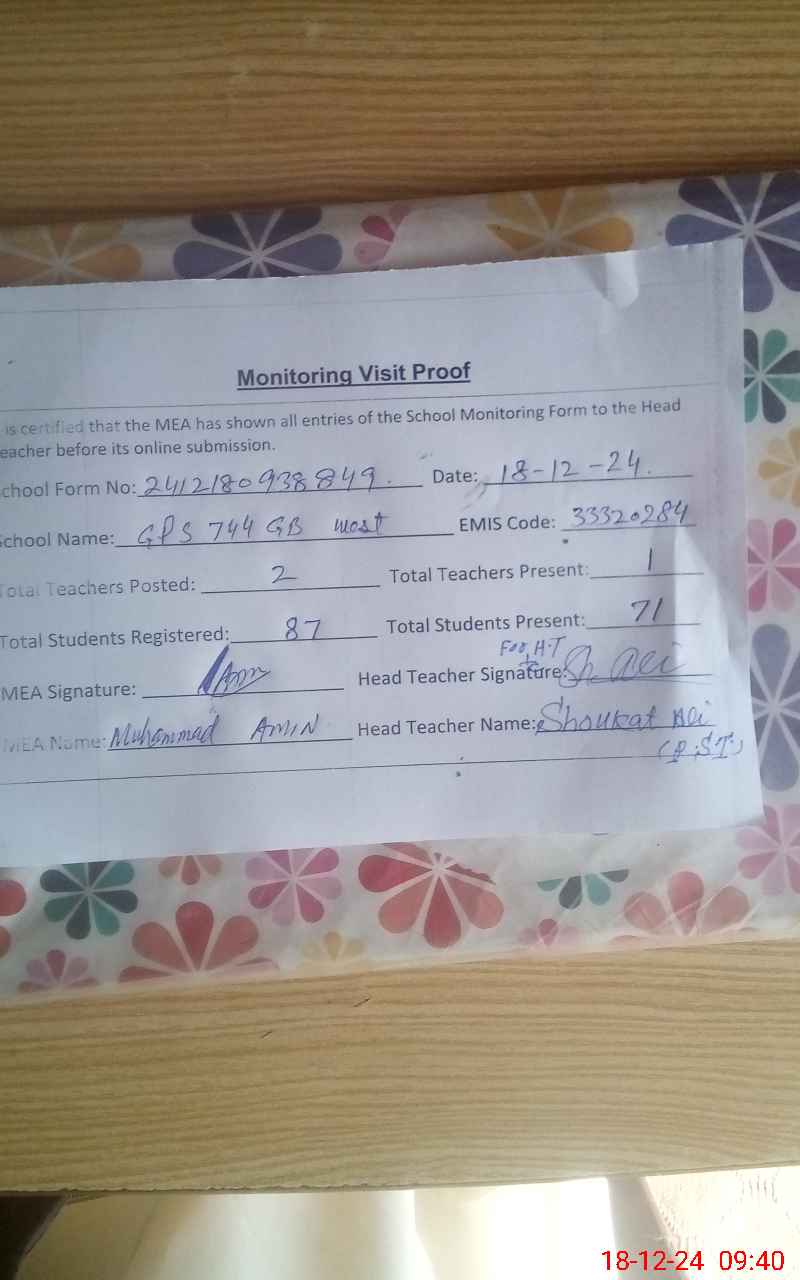 Monitoring Visit Proof
is certified that the MEA has shown all entries of the School Monitoring Form to the Head
eacher before its online submission.
chool Form No: 2412180938849. Date: 18-12-24.
School Name: GPS 744 GB west EMIS Code: 33320284
Total Teachers Posted: 2 Total Teachers Present: 1
Total Students Registered: 87 Total Students Present: 71
For H.T
MEA Signature: Amin Head Teacher Signature: Sh. Ali
MEA Name: Muhammad AMIN Head Teacher Name: Shoukat Ali
(P.S.T.)
18-12-24 09:40